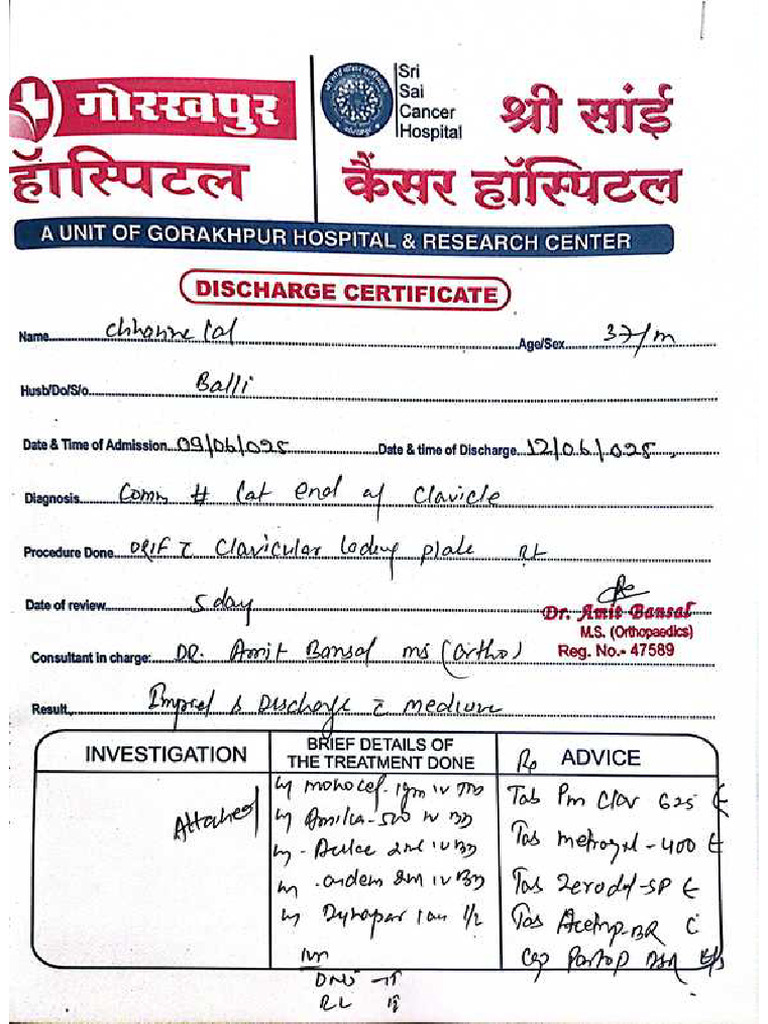 गोरखपुर
हॉस्पिटल
Sri
Sai
Cancer
Hospital
श्री सांई
कैंसर हॉस्पिटल
A UNIT OF GORAKHPUR HOSPITAL & RESEARCH CENTER
DISCHARGE CERTIFICATE
Name Chhanne Lal Age/Sex 37/m
Husb/Do/S/o Balli
Date & Time of Admission 09/06/025 Date & time of Discharge 12/06/025
Diagnosis Comm # Lat end of Clavicle
Procedure Done ORIF c̄ Clavicular Locking plate Rt
Date of review 5 day
Dr. Amit Bansal
M.S. (Orthopaedics)
Reg. No.- 47589
Consultant in charge: DR. Amit Bansal ms (ortho)
Result, & Discharge c̄
INVESTIGATION
BRIEF DETAILS OF
THE TREATMENT DONE
ADVICE
Attached
monocef 1gm IV
Amika-500 IV BD
2ml IV BD
IV BD
Dynapar 1
DNS
RL
Tab Clav 625
Tab metrogyl-400
Tab Zerodol-SP
Tab
Cap Pantop DSR